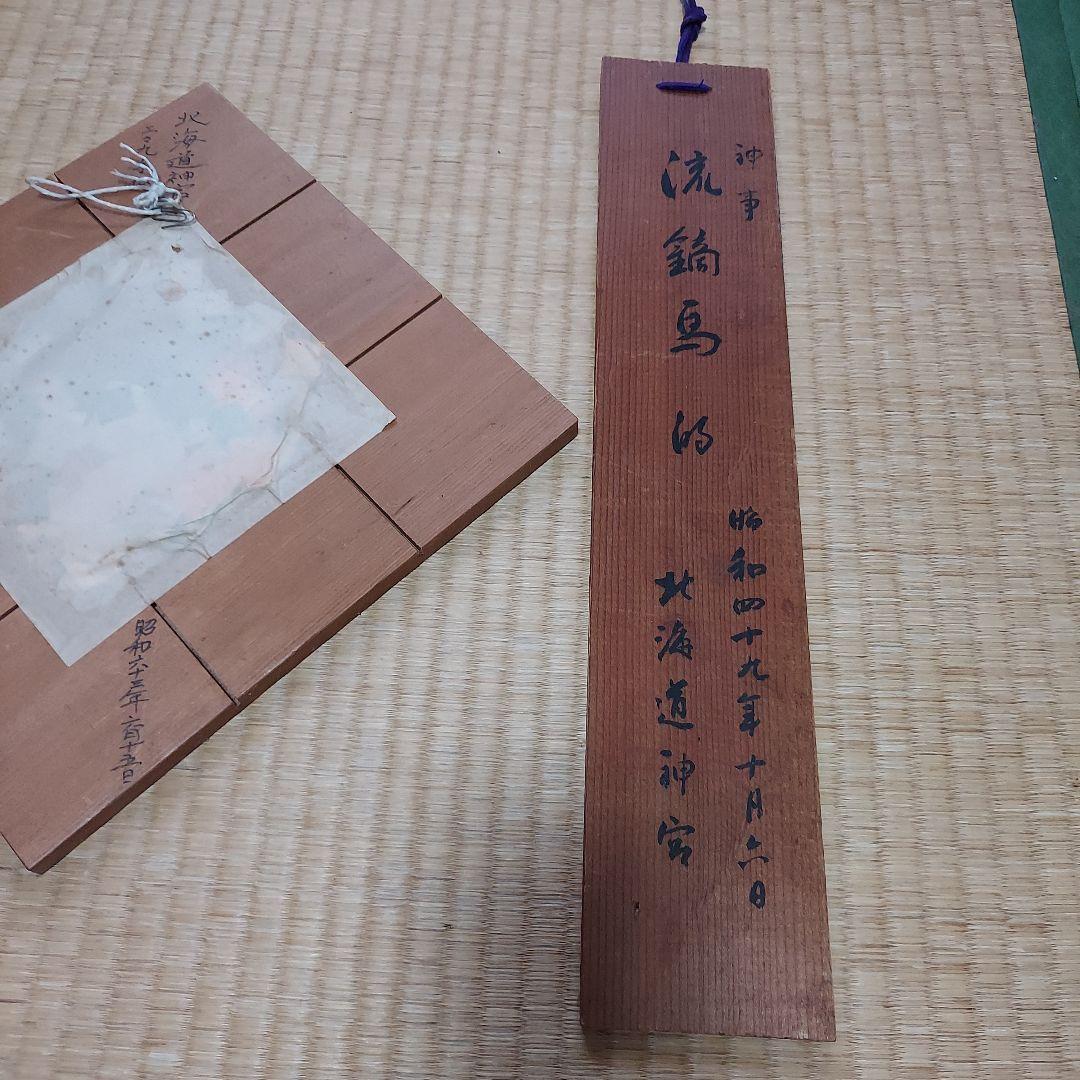 神事
流鏑馬的
昭和四十九年十月六日
北海道神宮
北海道神宮
昭和六十三年六月十五日